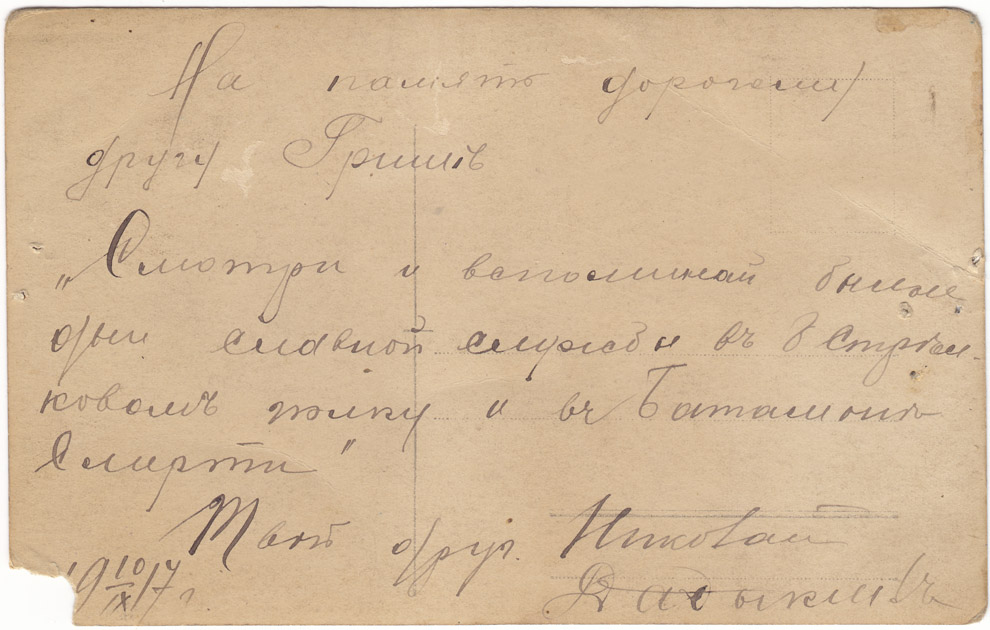 На память дорогому
другу Гришѣ
„Смотри и вспоминай былые
дни славной службы въ 8 Стрѣл-
ковомъ полку и въ Баталіонѣ
Смерти"
Твой друг. Николай
19 10/IX 17 г